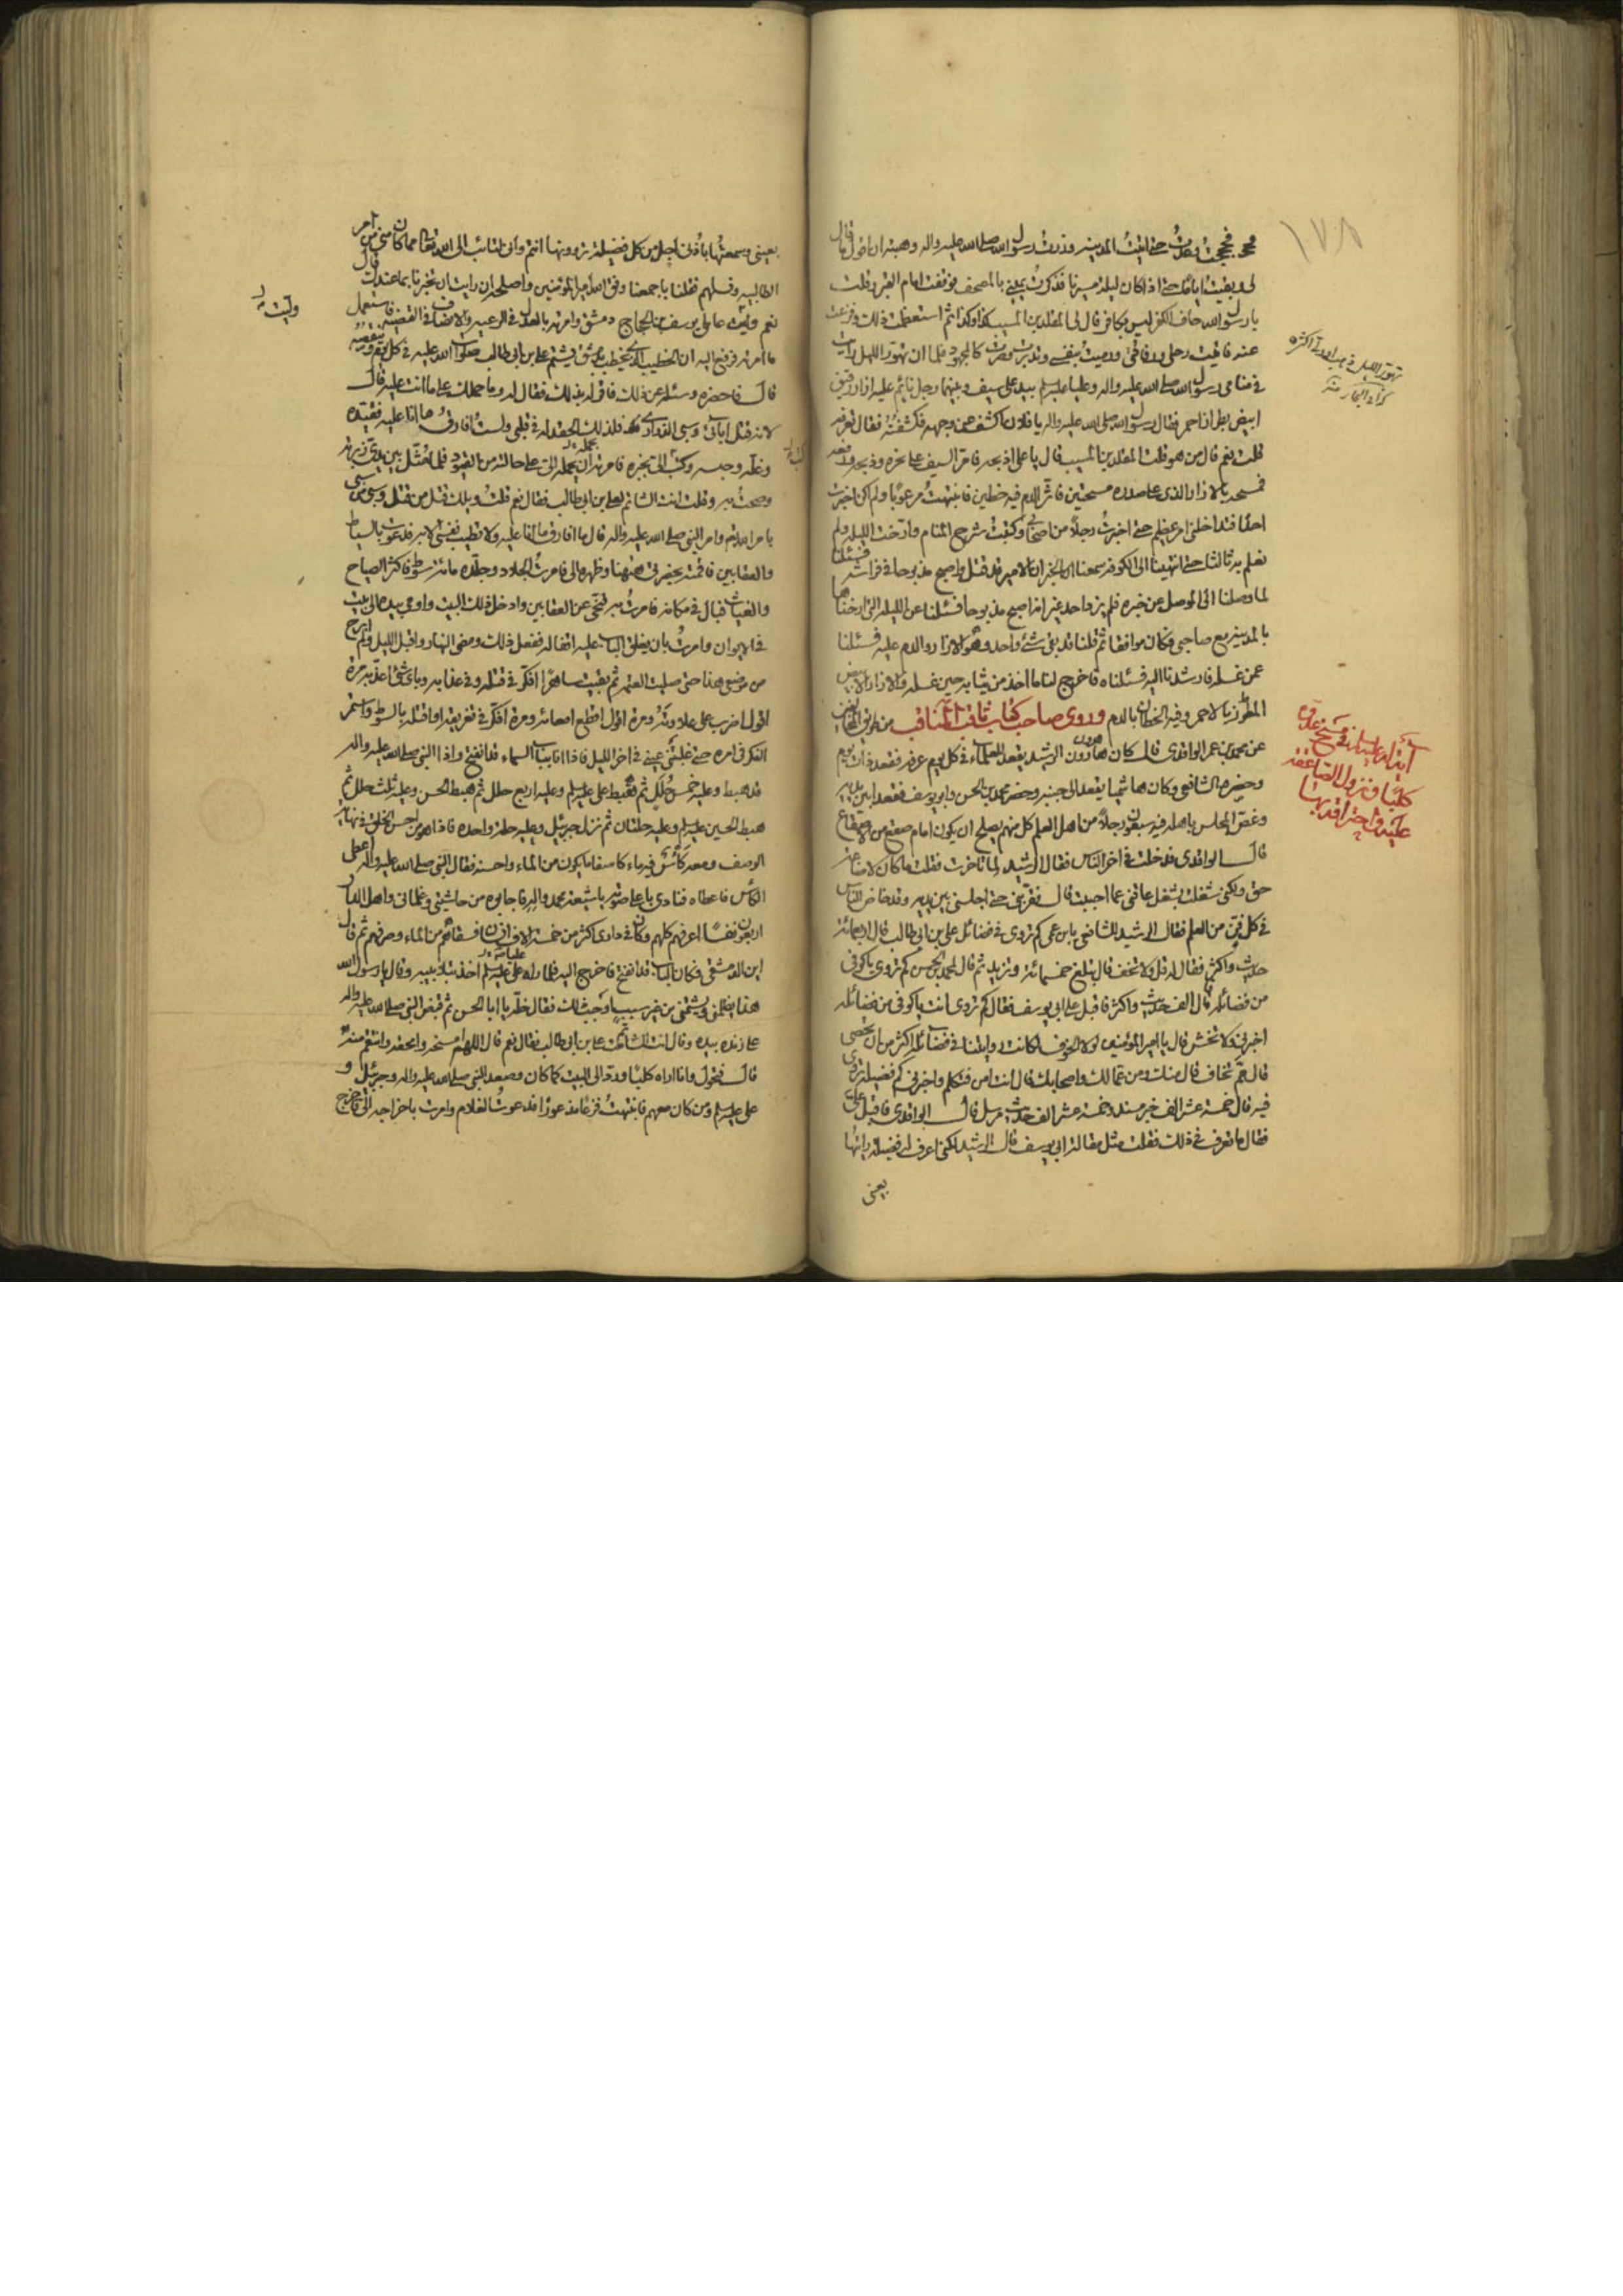 ١٧٨
حتى اتيتُ المدينه وزرت رسول الله صلى الله عليه واله
يا رسول الله قال لى المقلد بن المسيب كذا وكذا ثم استعظمت ذلك
فى منامى رسول الله صلى الله عليه واله وعليا عليه السلم بيده سيف وبينهما رجل نائم عليه ازار
ابيض بطراز احمر فقال رسول الله صلى الله عليه واله يا فلان اكشف عن وجهه فكشفتُه فقال تعرفه
قلت نعم قال من هو قلت المقلد بن المسيب قال يا على اذبحه فامرّ السيف على نحره وذبحه
فمسحه بالازار الذى على صدره مسحتين فاثّر الدم فيه خطين فانتبهتُ مرعوبًا ولم اكن اخبرت
احدًا فتداخلنى امر عظيم حتى اخبرتُ رجلاً من اصحابى وكتبت شرح المنام وارّخت الليله ولم
نعلم به ثالثا حتى انتهينا الى الكوفه سمعنا الخبر ان الامير قد قتل واصبح مذبوحا فى فراشه فسئلنا
لما وصلنا الى الموصل عن خبره فلم يزد احد غير انه اصبح مذبوحا فسئلنا عن الليله التى ارخناها
بالمدينه مع صاحبى فكان موافقا ثم قلنا قد بقى شئ واحد وهو الازار والدم عليه فسئلنا
عمن غسله فارشدنا اليه فسئلناه فاخرج لنا ما اخذ من ثيابه حين غسله والازار الابيض
المطرّز بالاحمر وفيه الخطان بالدم وروى صاحب كتاب ثاقب المناقب من طريق
عن محمد بن عمر الواقدى قال كان هارون الرشيد يقعد للعلماء فى كل يوم عرفه فقعد ذات يوم
وحضره الشافعى وكان هاشميا يقعد الى جنبه وحضر محمد بن الحسن وابو يوسف فقعدا بين يديه
وغصّ المجلس باهله فيه سبعون رجلاً من اهل العلم كل منهم يصلح ان يكون امام صقع من الاصقاع
قال الواقدى فدخلت فى اخر الناس فقال الرشيد لم تاخرت فقلت ما كان لاضاعه
حق ولكنى شغلت بشغل عاقنى عما احببت قال فقربنى حتى اجلسنى بين يديه وقد خاض الناس
فى كل فنّ من العلم فقال الرشيد للشافعى يا بن عمى كم تروى فى فضائل على بن ابى طالب قال اربعمائة
حديث واكثر فقال له قل ولا تخف قال يبلغ خمسمائة ويزيد ثم قال لمحمد بن الحسن كم تروى يا كوفى
من فضائله قال الف حديث واكثر فاقبل على ابى يوسف فقال كم تروى انت يا كوفى من فضائله
اخبرنى ولا تخش قال يا امير المؤمنين لولا الخوف لكانت روايتنا فى فضائله اكثر من ان تحصى
قال ممّ تخاف قال منك ومن عمّالك واصحابك قال انت امن فتكلم واخبرنى كم فضيله تروى
فيه قال خمسة عشر الف خبر مسند وخمسة عشر الف حديث مرسل قال الواقدى فاقبل علىّ
فقال ما تعرف فى ذلك فقلت مثل مقالة ابى يوسف قال الرشيد لكنى اعرف له فضيلة رايتُها
يعنى
بعينى وسمعتُها باُذنى اجلّ من كل فضيلة تروونها انتم وانى لتائب الى الله تعالى مما كان منى من امر
الطالبيه ونسلهم فقلنا باجمعنا وفق الله امير المؤمنين واصلحه ان رايت ان تخبرنا بما عندك قال
نعم ولّيت عاملى يوسف بن الحجاج دمشق وامرته بالعدل فى الرعيه والانصاف فى القضيه فاستعمل
ما امرته فرفع اليه ان الخطيب الذى يخطب بدمشق يشتم على بن ابى طالب صلوات الله عليه فى كل يوم
قال فاحضره وسئله عن ذلك فاقرّ له بذلك فقال له وما حملك على ما انت عليه قال
لانه قتل ابائى وسبى الذرارى فلذلك الحقد له فى قلبى ولستُ افارق ما انا عليه فقيّده
وغلّه وحبسه وكتب الىّ بخبره فامرته ان يحمله الىّ على حالته من القيود فلما مثل بين يدىّ زبرته
وصحتُ به وقلت انت الشاتم لعلى بن ابى طالب فقال نعم قلتُ ويلك قتل من قتل وسبى من سبى
بامر الله تع وامر النبى صلى الله عليه واله قال ما افارق ما انا عليه ولا تطيب نفسى الا به فدعوت بالسياط
والعقابين فاقمته بحضرتى هيهنا وظهره الى فامرتُ الجلاد وجلّده مائة سوط فاكثر الصياح
والغياث فبال فى مكانه فامرتُ به فنحّى عن العقابين وادخل ذلك البيت واومى بيده الى بيت
فى الايوان وامرتُ بان يغلق الباب عليه اقفاله ففعل ذلك ومضى النهار واقبل الليل ولم ابرح
من موضعى هذا حتى صليت العتمه ثم بقيت ساهرًا افكّر فى قتله وفى عذابه وباى شئ اعذّبه مرة
اقول اضرب على علاوته ومرة اقول اقطع امعائه ومرة افكّر فى تغريقه او قتله بالسوط واستمر
الفكر فى امره حتى غلبتنى عينى فى اخر الليل فاذا انا بباب السماء قد انفتح واذا النبى صلى الله عليه واله
قد هبط وعليه خمس حُلَل ثم هبط على عليه السلم وعليه اربع حلل ثم هبط الحسن وعليه ثلث حلل ثم
هبط الحسين عليه السلم وعليه حلتان ثم نزل جبرئيل وعليه حلة واحده فاذا هو من احسن الخلق فى نهايه
الوصف ومعه كأس فيه ماء كاصفا ما يكون من الماء واحسنه فقال النبى صلى الله عليه واله اعطنى
الكأس فاعطاه فنادى باعلى صوته يا شيعة محمد واله فاجابوه من حاشيتى وغلمانى واهل الدار
اربعون نفسًا اعرفهم كلهم وكان فى دارى اكثر من خمسة الاف انسان فسقاهم من الماء وصرفهم ثم قال
اين الدمشقى فكان الباب قد انفتح فاخرج اليه فلما راه على عليه السلم اخذ بتلابيبه وقال يا رسول الله
هذا يظلمنى ويشتمنى من غير سبب اوجب ذلك فقال خلّه يا ابا الحسن ثم قبض النبى صلى الله عليه واله
على زنده بيده وقال انت الشاتم على بن ابى طالب فقال نعم قال اللهم امسخه وامحقه وانتقم منه
قال فتحول وانا اراه كلبًا وردّ الى البيت كما كان وصعد النبى صلى الله عليه واله وجبرئيل و
على عليه السلم ومن كان معهم فانتبهتُ فزعًا مذعورًا فدعوتُ الغلام وامرت باخراجه الىّ فاخرج
ولّيت